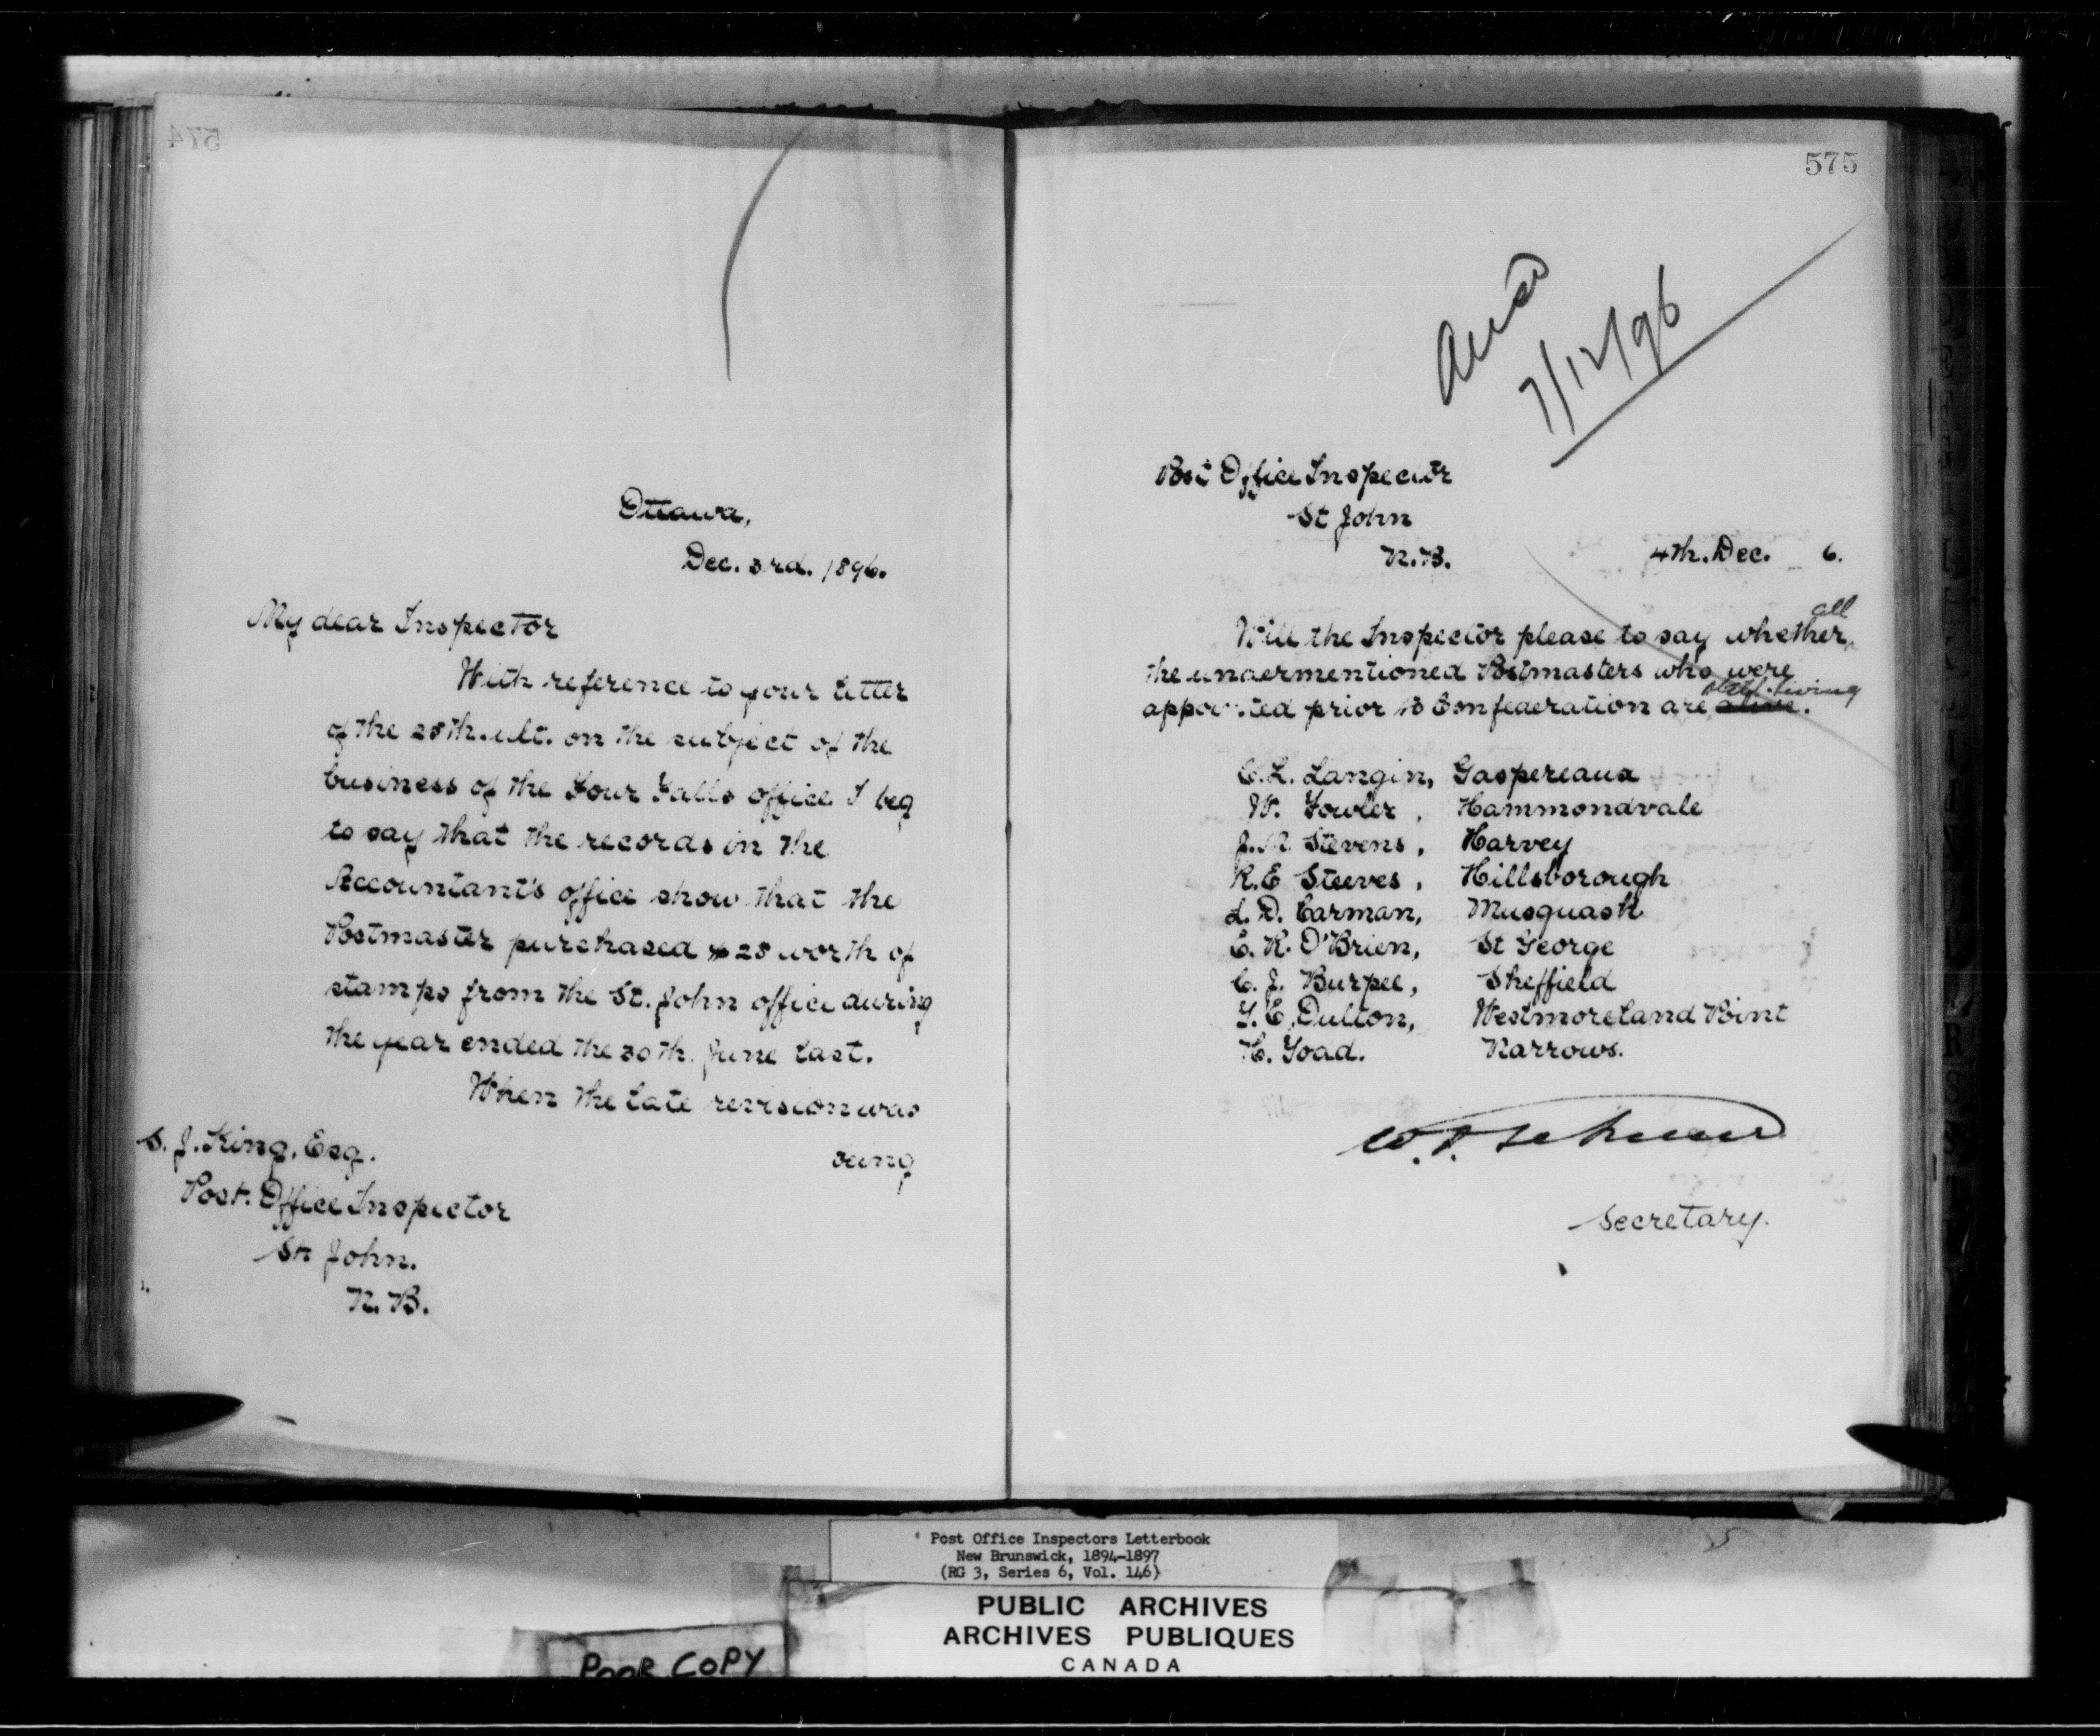 574
Ottawa,
Dec. 3rd. 1896.
My dear Inspector
With reference to your letter
of the 28th. ult. on the subject of the
business of the Four Falls office I beg
to say that the records in the
Accountant's office show that the
Postmaster purchased $28 worth of
stamps from the St. John office during
the year ended the 30th. June last.
When the late revision was
being
S. J. King, Esq.
Post. Office Inspector
St John.
N. B.
575
7/12/96
Post Office Inspector
St John
N.B.
4th. Dec. 6.
Will the Inspector please to say whether all
the undermentioned Postmasters who were
appointed prior to Confederation are alive. still living
C. L. Langin, Gaspereaux
W. Fowler, Hammondvale
J. M. Stevens, Harvey
R. E Steeves, Hillsborough
L. D. Carman, Musquash
E. R. O'Brien, St George
C. J. Burpee, Sheffield
G. E. Dulton, Westmoreland Point
H. Toad. Narrows.
Secretary.
Post Office Inspectors Letterbook
New Brunswick, 1894-1897
(RG 3, Series 6, Vol. 146)
PUBLIC ARCHIVES
ARCHIVES PUBLIQUES
CANADA
POOR COPY